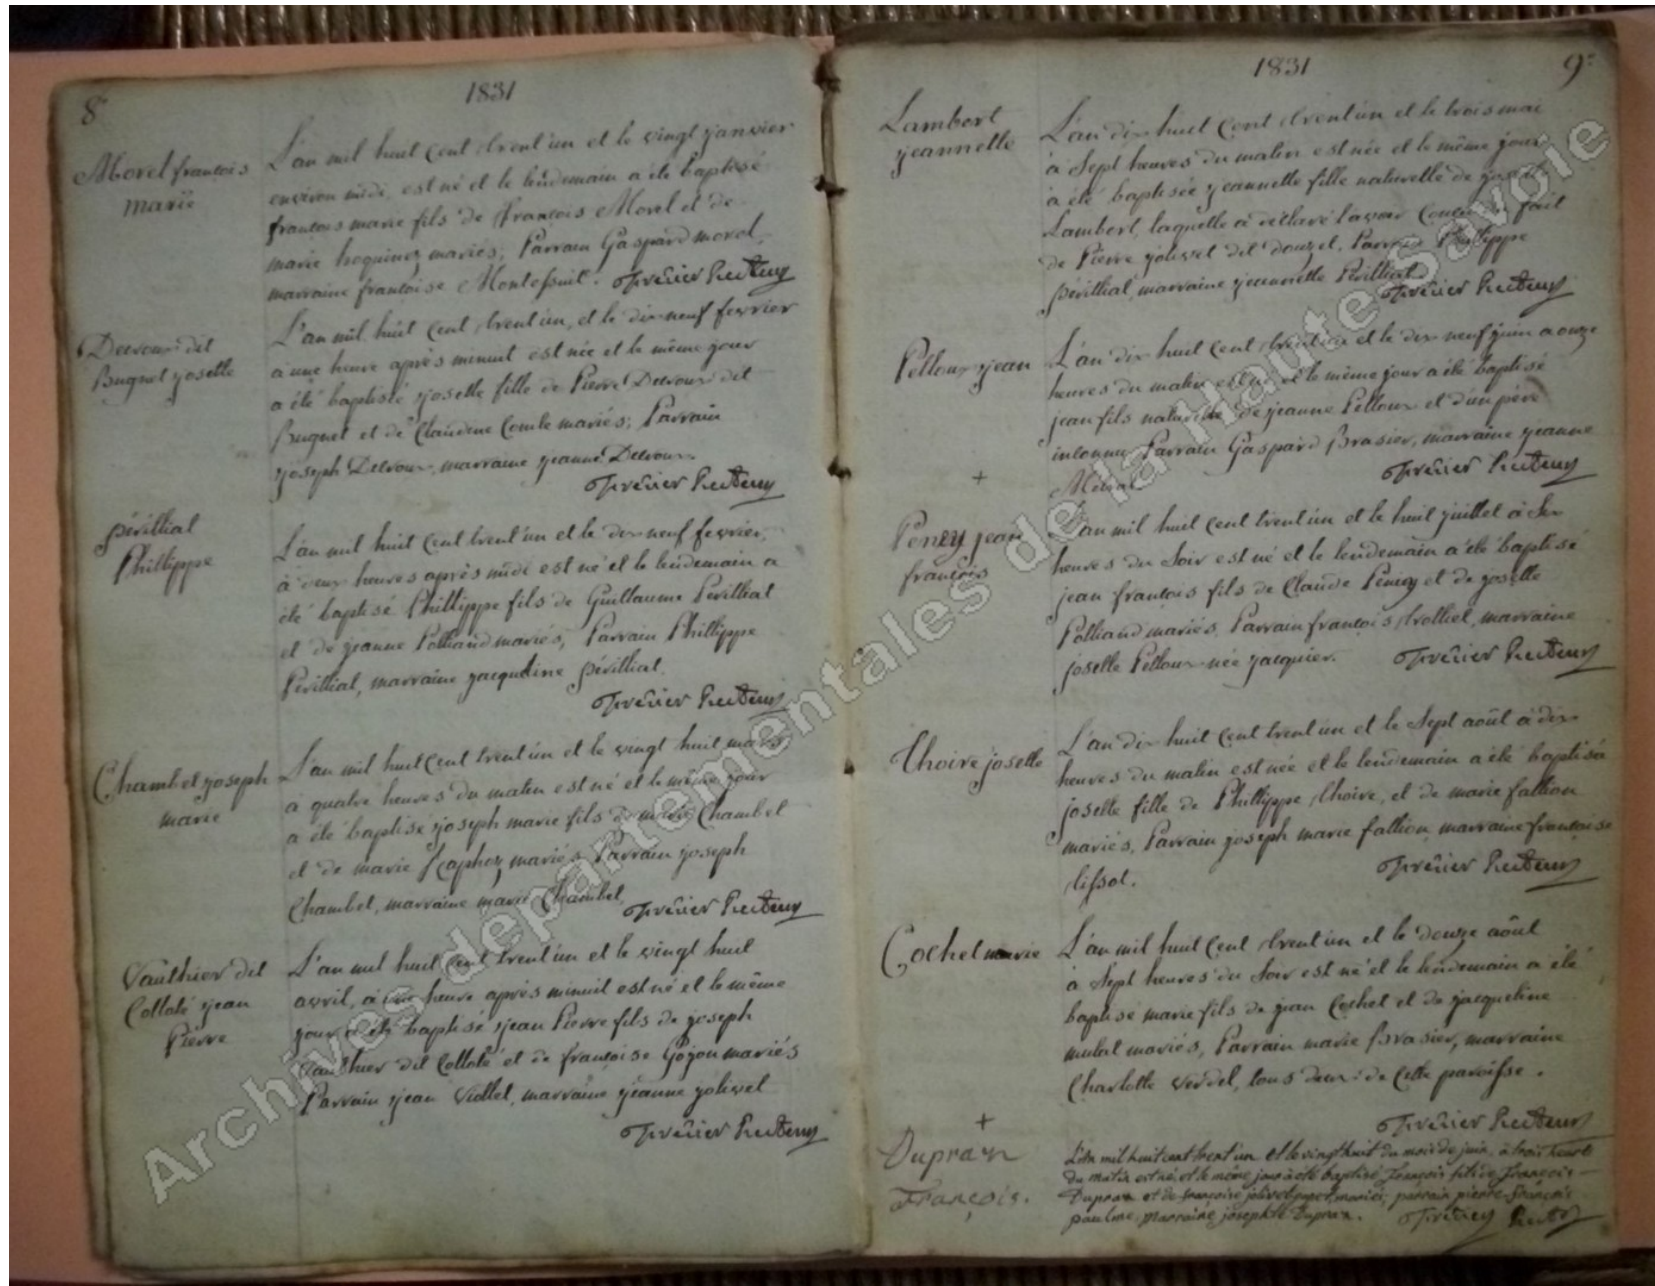 8
1831
Morel françois
marie
L'an mil huit Cent trent'un et le vingt janvier
environ midi, est né et le lendemain a été baptisé
françois marie fils de françois Morel et de
marie hoquinez mariés; Parrain Gaspard morel,
marraine françoise Montessuit. Recteur
Decroux dit
Bugnet josette
L'an mil huit Cent trent'un, et le dix neuf fevrier
a une heure après minuit est née et le même jour
a été baptisé josette fille de Pierre Decroux dit
Bugnet et de Claudine Comte mariés; Parrain
joseph Decroux, marraine jeanne Decroux
Recteur
périlliat
Phillippe
L'an mil huit Cent trent'un et le dix neuf fevrier,
à deux heures après midi est né et le lendemain a
été baptisé Phillippe fils de Guillaume Périlliat
et de jeanne Polliand mariés, Parrain Phillippe
Périlliat, marraine jacqueline périlliat.
Recteur
Chambet joseph
marie
L'an mil huit Cent trent'un et le vingt huit mars
à quatre heures du matin est né et le même jour
a été baptisé joseph marie fils de marie Chambet
et de marie Scaphoz mariés, Parrain joseph
Chambet, marraine marie Chambet, Recteur
Vauthier dit
Collolé jean
Pierre
L'an mil huit Cent trent'un et le vingt huit
avril, à une heure après minuit est né et le même
jour a été baptisé jean Pierre fils de joseph
Vauthier dit Collolé et de françoise Gojon mariés
Parrain jean Viollet, marraine jeanne jolivet
Recteur
1831
9
Lambert
jeannette
L'an dix huit Cent trent'un et le trois mai
à Sept heures du matin est née et le même jour
à été baptisée jeannette fille naturelle de
Lambert, laquelle à déclaré l'avoir fait
de Pierre jolivet dit douzet, Parrain Phylippe
périlliat, marraine jeannette Périlliat
Recteur
Pelloux jean
L'an dix huit Cent trent'un et le dix neuf juin a onze
heures du matin est né et le même jour a été baptisé
jean fils naturelle de jeanne Pelloux et d'un père
inconnu Parrain Gaspard Brasier, marraine jeanne
Recteur
+
Penzy jean
françois
L'an mil huit Cent trent'un et le huit juillet à Six
heures du Soir est né et le lendemain a été baptisé
jean françois fils de Claude Penzy et de josette
Polliand mariés, Parrain françois trolliet, marraine
josette Pelloux née jacquier. Recteur
Thoire josette
L'an dix huit Cent trent'un et le Sept août à dix
heures du matin est née et le lendemain a été baptisée
josette fille de Phillippe thoire, et de marie fallion
mariés, Parrain joseph marie fallion marraine françoise
tissot.
Recteur
Cochet marie
L'an mil huit Cent trent'un et le douze août
à Sept heures du Soir est né et le lendemain a été
baptisé marie fils de jean Cochet et de jacqueline
mulat mariés, Parrain marie Brasier, marraine
Charlotte verdel, tous deux de Cette paroisse.
Recteur
+
Dupraz
François.
L'an mil huit cent trent'un et le vingt huit du mois de juin, à trois heures
du matin est né et le même jour à été baptisé François fils de François
Dupraz et de françoise jolivet mariés; parrain pierre françois
marraine josephte Dupraz. Recteur
Archives départementales de la Haute-Savoie